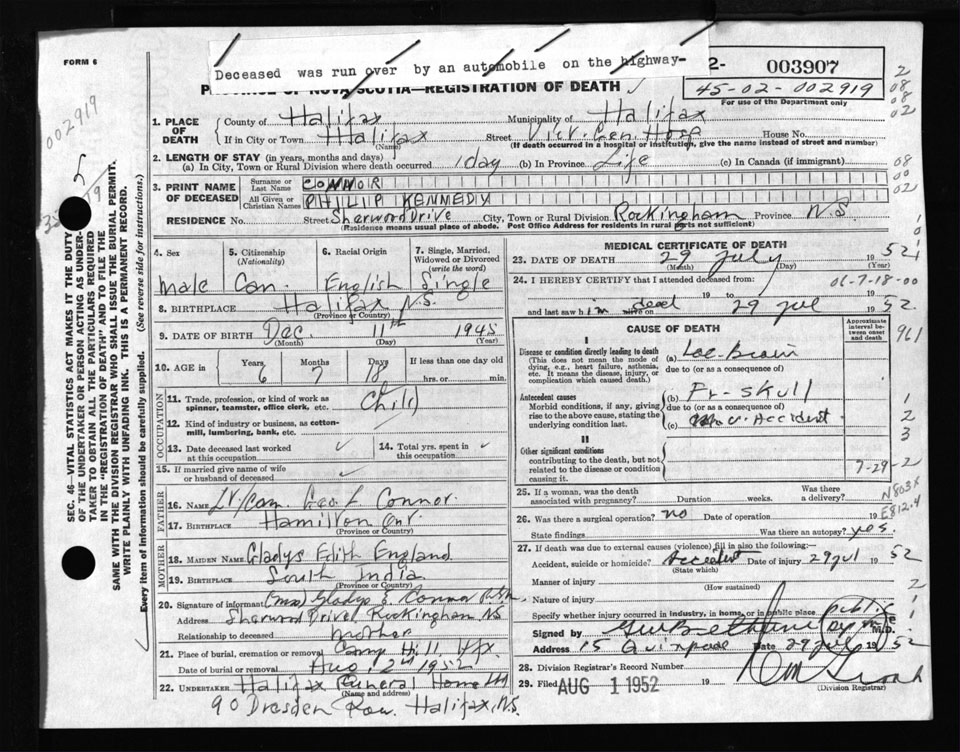 FORM 6
Deceased was run over by an automobile on the highway-
2- 003907
45-02-002919
For use of the Department only
PROVINCE OF NOVA SCOTIA—REGISTRATION OF DEATH
002919
1. PLACE OF DEATH
County of Halifax Municipality of Halifax
If in City or Town Halifax Street Vic. Gen. Hosp House No.
(Name) (If death occurred in a hospital or institution, give the name instead of street and number)
2. LENGTH OF STAY (in years, months and days)
(a) In City, Town or Rural Division where death occurred 1 day (b) In Province Life (c) In Canada (if immigrant)
3. PRINT NAME OF DECEASED
Surname or Last Name CONNOR
All Given or Christian Names PHILIP KENNEDY
RESIDENCE No. Street Sherwood Drive City, Town or Rural Division Rockingham Province N.S.
(Residence means usual place of abode. Post Office Address for residents in rural parts not sufficient)
4. Sex 5. Citizenship (Nationality) 6. Racial Origin 7. Single, Married, Widowed or Divorced (write the word)
male Can. English Single
8. BIRTHPLACE Halifax N.S.
(Province or Country)
9. DATE OF BIRTH Dec. 11th 1945
(Month) (Day) (Year)
10. AGE in Years Months Days If less than one day old
6 7 18 hrs. or min.
OCCUPATION
11. Trade, profession, or kind of work as spinner, teamster, office clerk, etc. Child
12. Kind of industry or business, as cotton-mill, lumbering, bank, etc.
13. Date deceased last worked at this occupation
14. Total yrs. spent in this occupation
15. If married give name of wife or husband of deceased
FATHER
16. NAME Lt/Com. Geo L Connor.
17. BIRTHPLACE Hamilton Ont.
(Province or Country)
MOTHER
18. MAIDEN NAME Gladys Edith England
19. BIRTHPLACE South India
(Province or Country)
20. Signature of informant (Mrs) Gladys E. Connor
Address Sherwood Drive, Rockingham NS
Relationship to deceased mother
21. Place of burial, cremation or removal Camp Hill, Hfx
Date of burial or removal Aug 2nd 1952
22. UNDERTAKER Halifax Funeral Home
(Name and address)
90 Dresden Row. Halifax, N.S.
MEDICAL CERTIFICATE OF DEATH
23. DATE OF DEATH 29 July 1952
(Month) (Day) (Year)
24. I HEREBY CERTIFY that I attended deceased from:
19 to 19
and last saw him dead alive on 29 Jul 1952
CAUSE OF DEATH
Approximate interval between onset and death
I
Disease or condition directly leading to death (a) Lac-Brain
(This does not mean the mode of dying, e.g., heart failure, asthenia, etc. It means the disease, injury, or complication which caused death.)
due to (or as a consequence of)
Antecedent causes (b) Fr-skull
Morbid conditions, if any, giving rise to the above cause, stating the underlying condition last.
due to (or as a consequence of)
(c) Mo.v. Accident
II
Other significant conditions
contributing to the death, but not related to the disease or condition causing it.
7-29-2
25. If a woman, was the death associated with pregnancy? Duration weeks. Was there a delivery?
N803X
26. Was there a surgical operation? no Date of operation 19
E812.4
State findings Was there an autopsy? yes.
27. If death was due to external causes (violence) fill in also the following:—
Accident, suicide or homicide? Accident Date of injury 29 Jul 1952
(State which)
Manner of injury
(How sustained)
Nature of injury
Specify whether injury occurred in industry, in home, or in public place public
Signed by M.D.
Address 15 Date 29 July 1952
28. Division Registrar's Record Number
29. Filed AUG 1 1952 19
(Division Registrar)
SEC. 46—VITAL STATISTICS ACT MAKES IT THE DUTY OF THE UNDERTAKER OR PERSON ACTING AS UNDERTAKER TO OBTAIN ALL THE PARTICULARS REQUIRED IN THE "REGISTRATION OF DEATH" AND TO FILE THE SAME WITH THE DIVISION REGISTRAR WHO SHALL ISSUE THE BURIAL PERMIT.
WRITE PLAINLY WITH UNFADING INK. THIS IS A PERMANENT RECORD.
Every item of information should be carefully supplied. (See reverse side for instructions.)